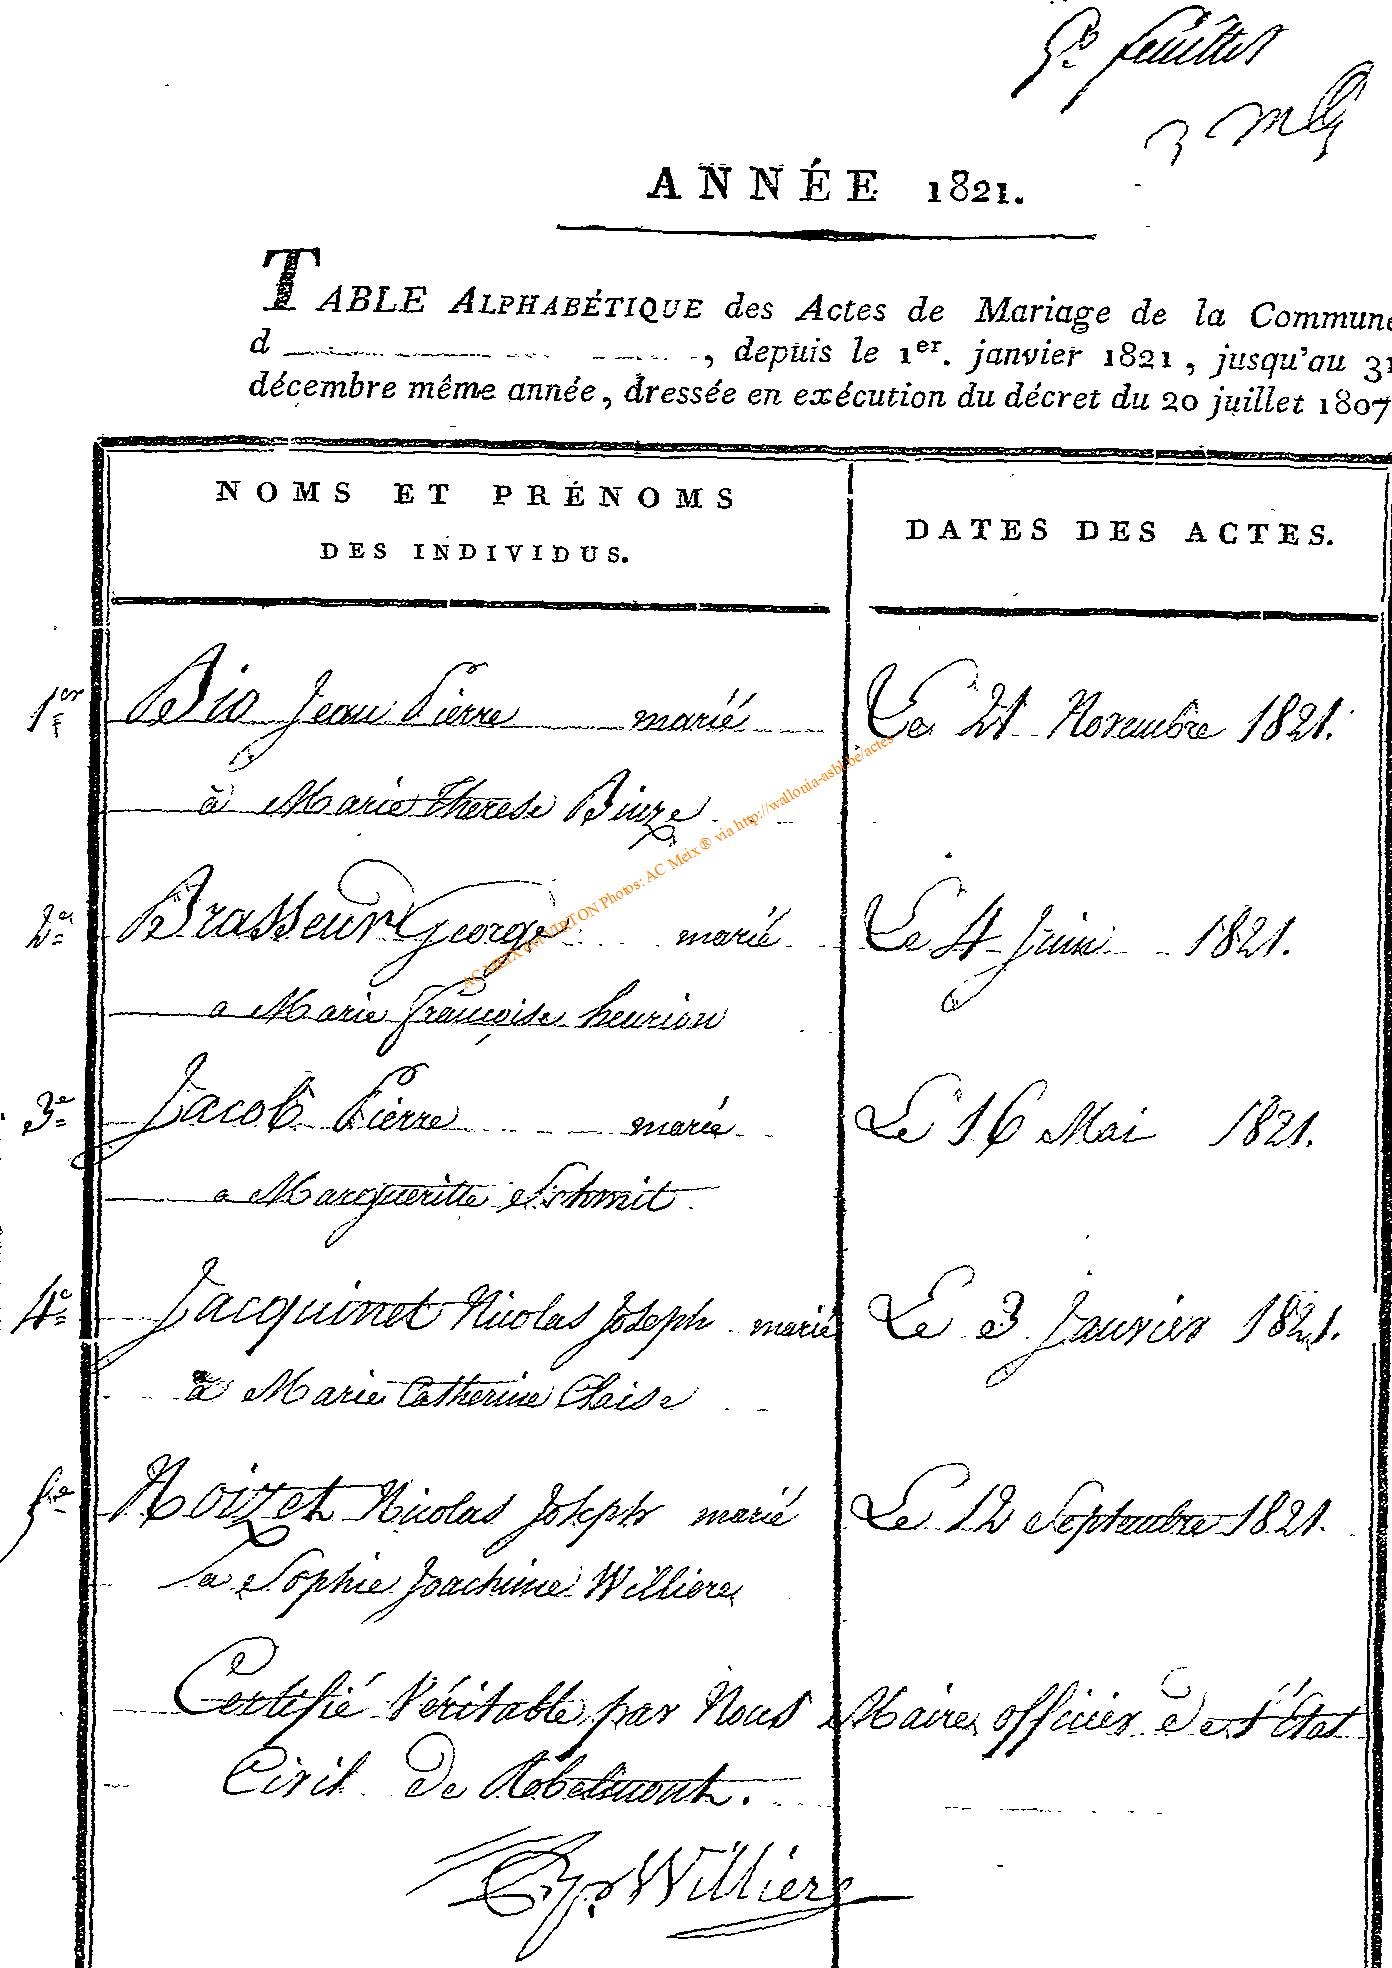 5e feuillet
ANNÉE 1821.
TABLE ALPHABÉTIQUE des Actes de Mariage de la Commune
d , depuis le 1er. janvier 1821, jusqu'au 31
décembre même année, dressée en exécution du décret du 20 juillet 1807
NOMS ET PRÉNOMS
DES INDIVIDUS.
DATES DES ACTES.
1er Bio Jean Pierre marié Le 21 Novembre 1821.
à Marie Therese Binze
2e Brasseur George marié Le 4 Juin 1821.
a Marie Françoise henrion
3e Jacob Pierre marié Le 16 Mai 1821.
a Margueritte Schmit
4e Jacquinet Nicolas Joseph marié Le 3 Janvier 1821.
à Marie Catherine Claise
5e Noizet Nicolas Joseph marié Le 12 Septembre 1821.
a Sophie Joachime Williere
Certifié Véritable par Nous Maire officier de l'état
Civil de Robelmont.
Williere
AC MEIX dvt VIRTON Photos: AC Meix ® via http://wallonia-asbl.be/actes